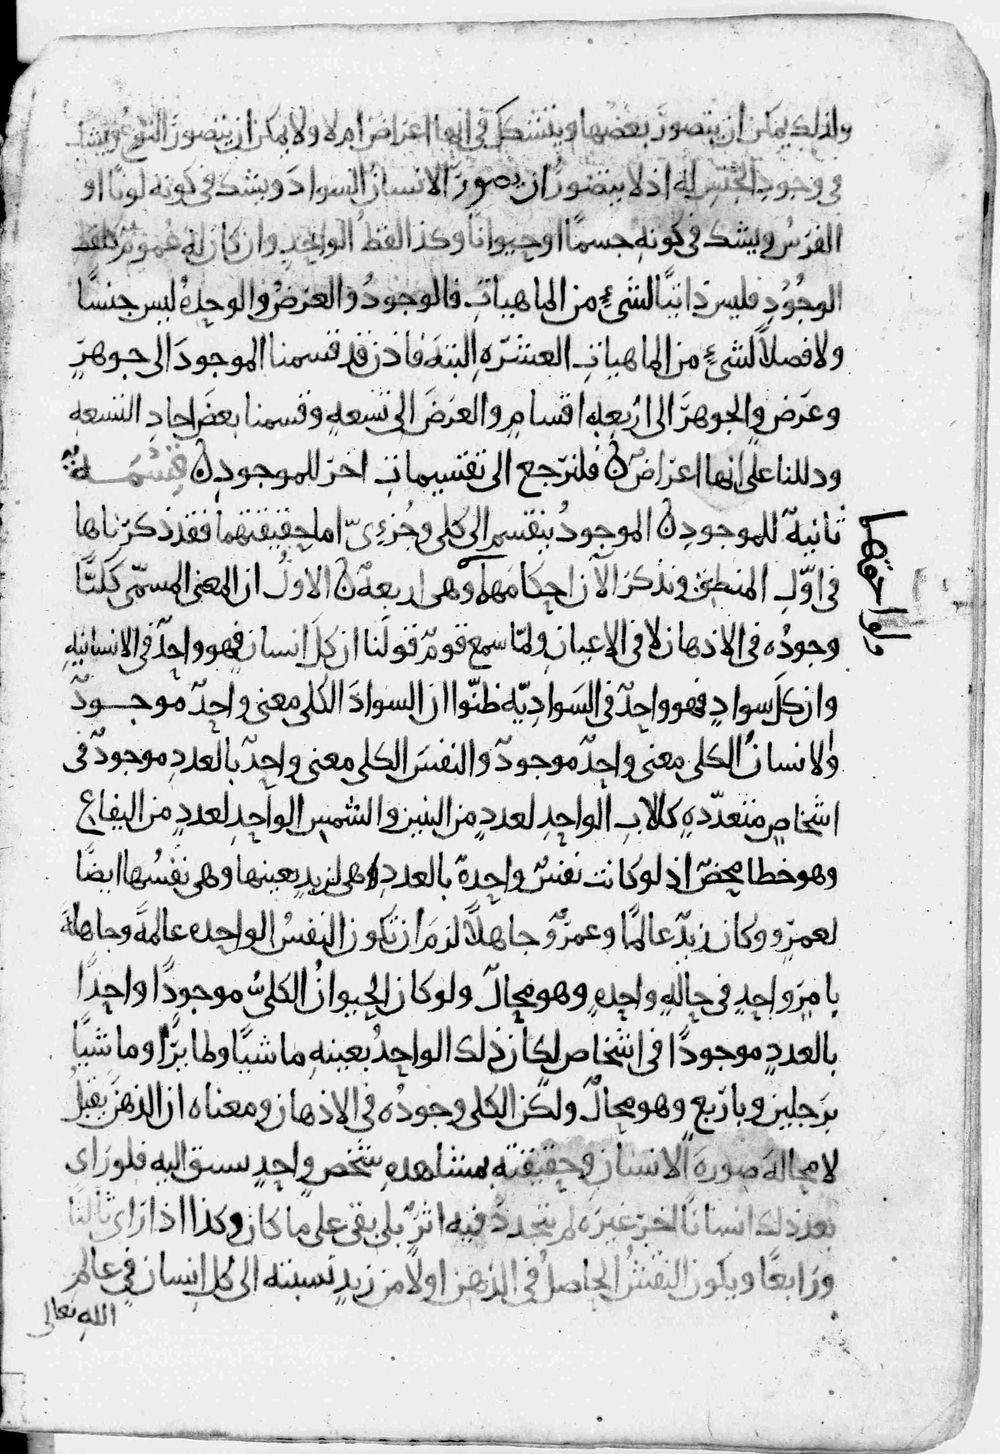 ولذلك يمكن ان يتصور بعضها ويتشكك في انها اعراض ام لا ولا يمكن ان يتصور النوع ويشك
في وجود الجنس له اذ لا يتصور ان يصور الانسان السواد ويشك في كونه لونا او
الفرس ويشك في كونه جسما او حيوانا وكذا لفظ الواحد وان كان له عموم كلفظ
الوجود فليس ذاتيا لشيء من الماهيات فالوجود والعرض والوحده ليس جنسا
ولا فصلا لشيء من الماهيات العشره البته فاذن قد قسمنا الموجود الى جوهر
وعرض والجوهر الى اربعه اقسام والعرض الى تسعه وقسمنا بعض احاد التسعه
ودللنا على انها اعراض فلنرجع الى تقسيمات اخر للموجود قسمة
ثانية للموجود الموجود ينقسم الى كلي وجزءي اما حقيقتهما فقد ذكرناها
في اول المنطق ونذكر الآن احكامهما وهي اربعة الاول ان المعنى المسمى كليا
ولواحقهما
وجوده في الاذهان لا في الاعيان ولما سمع قوم قولنا ان كل انسان فهو واحد في الانسانيه
وان كل سواد فهو واحد في السوادية ظنوا ان السواد الكلي معنى واحد موجود
والانسان الكلي معنى واحد موجود والنفس الكلي معنى واحد بالعدد موجود في
اشخاص متعدده كالاب الواحد لعدد من البنين والشمس الواحد لعدد من البقاع
وهو خطا محض اذ لو كانت نفس واحدة بالعدد هي لزيد بعينها وهي نفسها ايضا
لعمرو وكان زيد عالما وعمرو جاهلا لزم ان تكون النفس الواحده عالمة وجاهلة
بامر واحد في حاله واحده وهو محال ولو كان الحيوان الكلي موجودا واحدا
بالعدد موجودا في اشخاص لكان ذلك الواحد بعينه ماشيا وطايرا وماشيا
برجلين وباربع وهو محال ولكن الكلي وجوده في الاذهان ومعناه ان الذهن يقبل
لا محالة صورة الانسان وحقيقته بمشاهده شخص واحد سبق اليه فلو راى
بعد ذلك انسانا اخر غيره لم يتجدد فيه اثر بل يبقى على ما كان وكذا اذا راى ثالثا
ورابعا ويكون النقش الحاصل في الذهن اولا من زيد نسبته الى كل انسان في عالم
الله تعالى